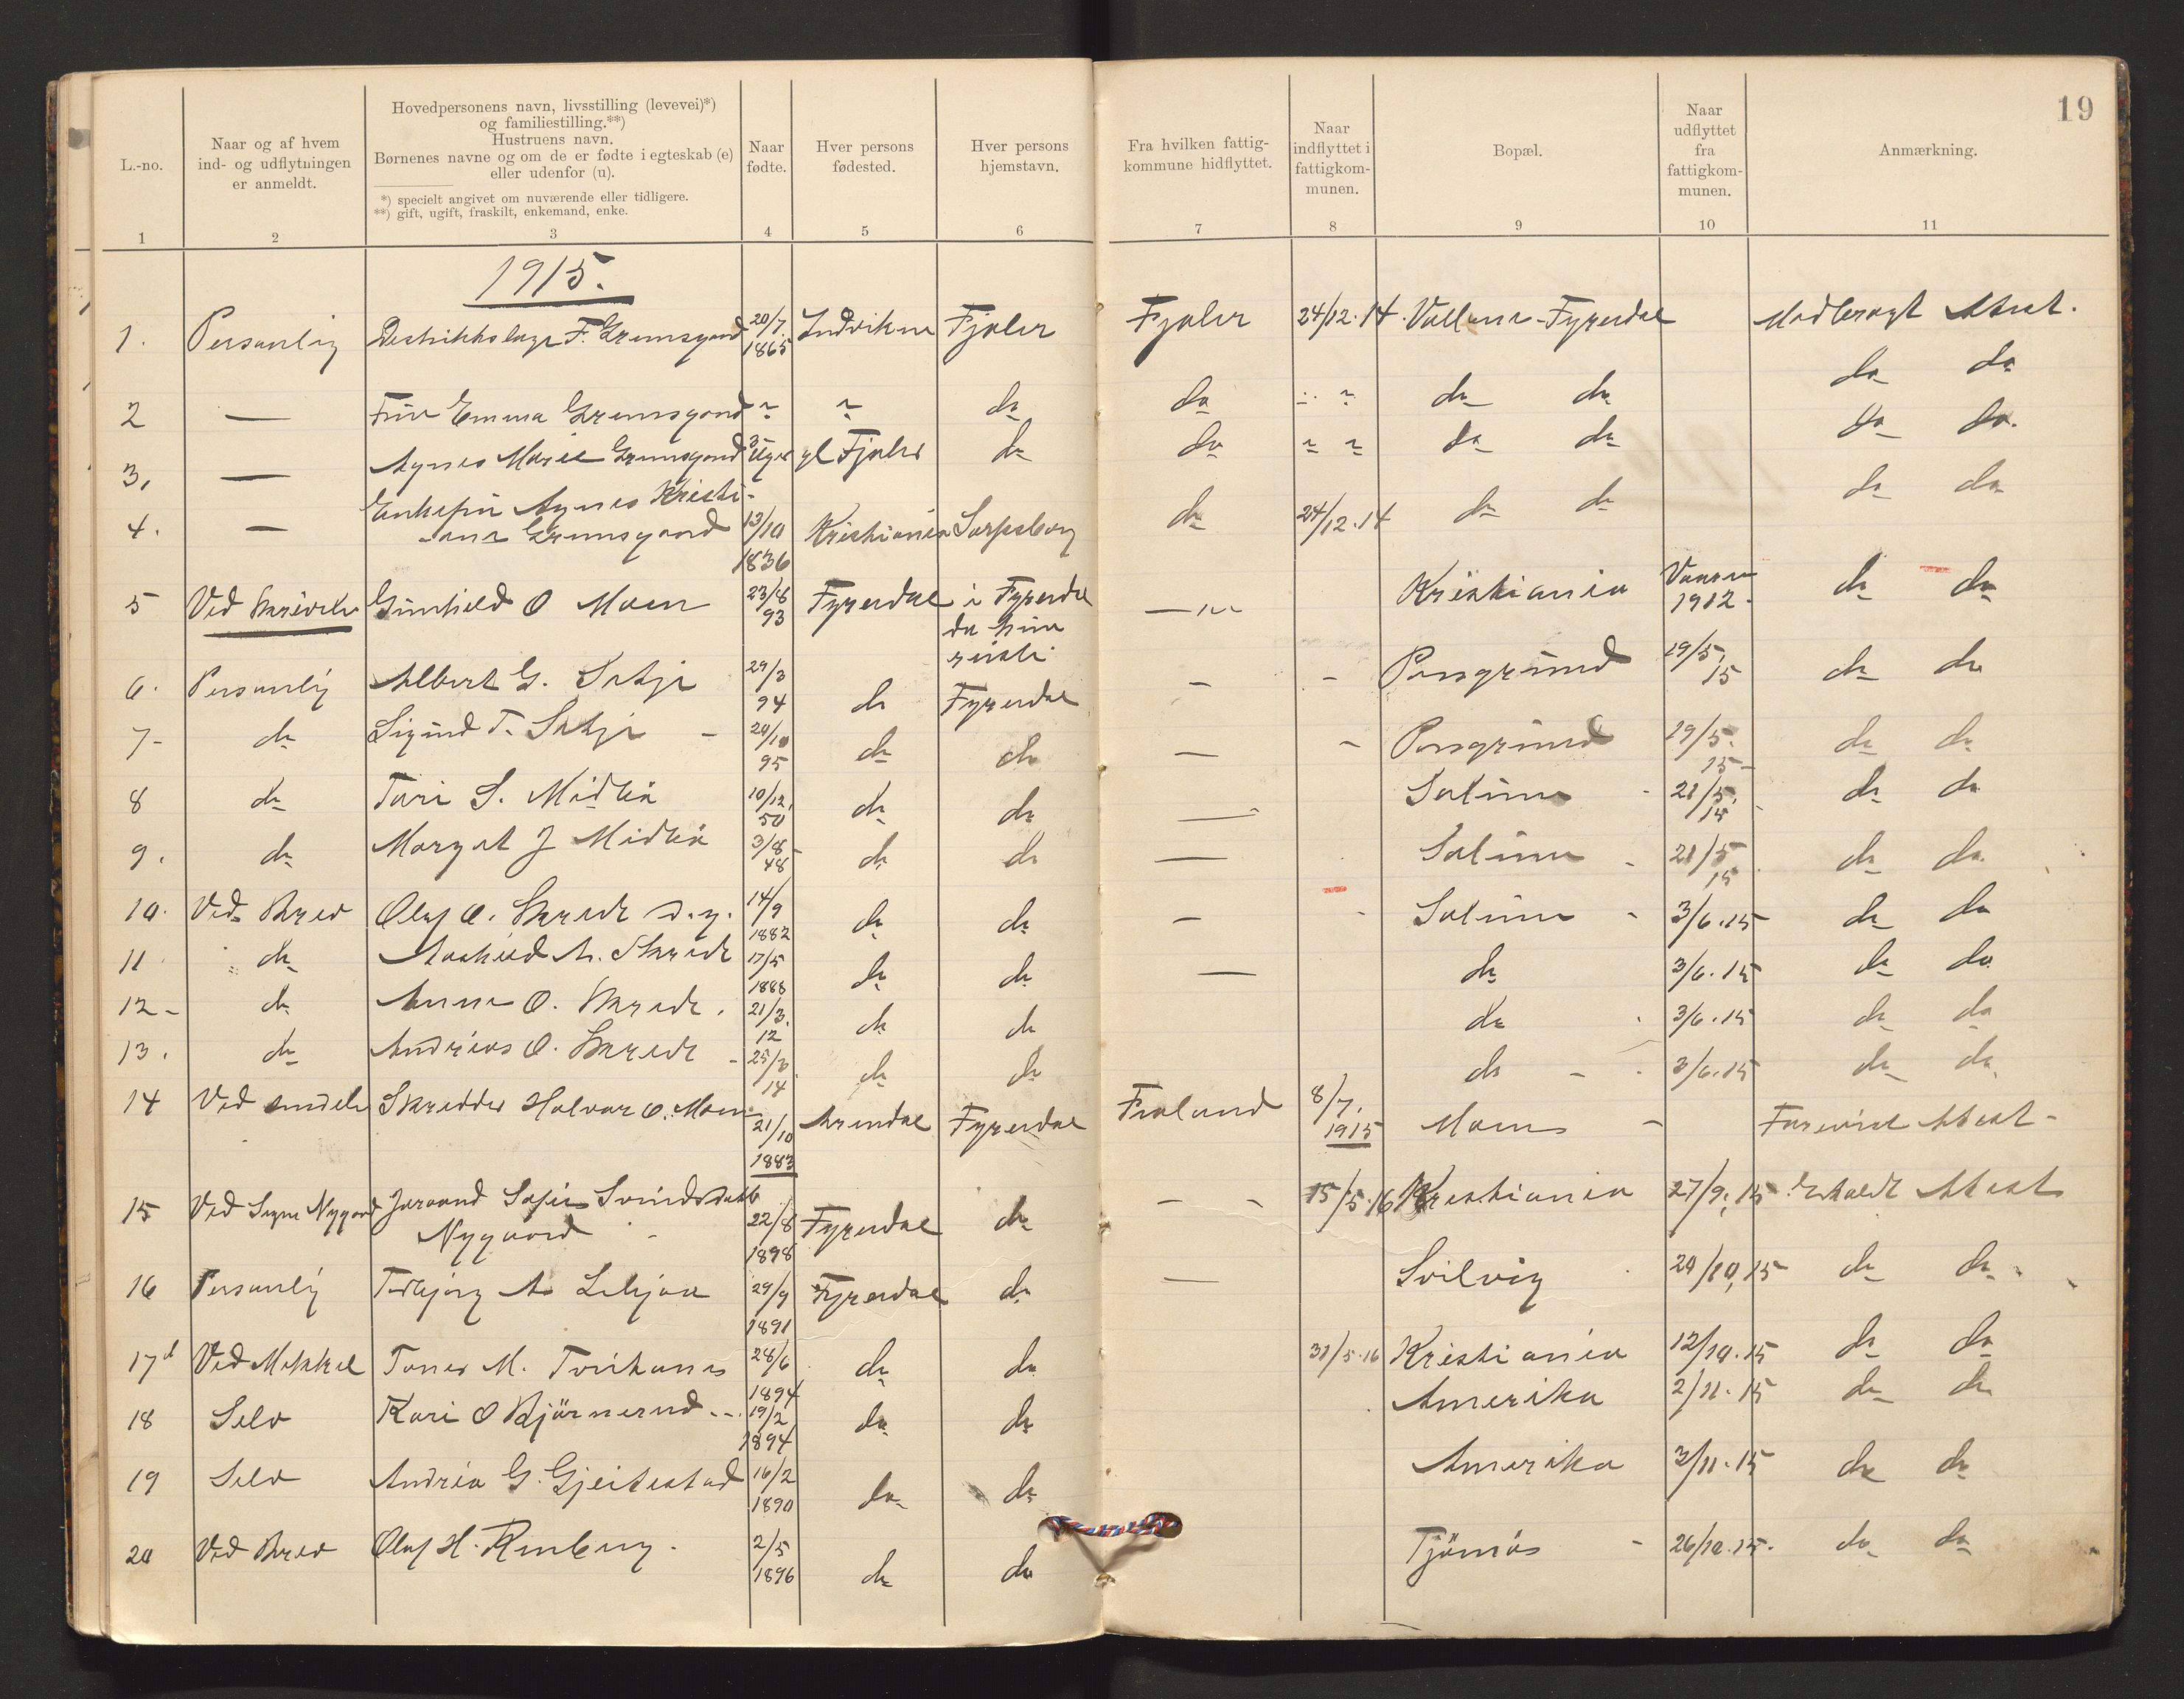 19
L.-no.
Naar og af hvem
ind- og udflytningen
er anmeldt.
Hovedpersonens navn, livsstilling (levevei)*)
og familiestilling.**)
Hustruens navn.
Børnenes navne og om de er fødte i egteskab (e)
eller udenfor (u).
*) specielt angivet om nuværende eller tidligere.
**) gift, ugift, fraskilt, enkemand, enke.
Naar
fødte.
Hver persons
fødested.
Hver persons
hjemstavn.
Fra hvilken fattig-
kommune hidflyttet.
Naar
indflyttet i
fattigkom-
munen.
Bopæl.
Naar
udflyttet
fra
fattigkom-
munen.
Anmærkning.
1 2 3 4 5 6 7 8 9 10 11
1915.
1. Personlig Distriktslæge F. Grimsgaard 20/7 1865 Indviken Fjaler Fjaler 24/12.14. Fyresdal Medbragt Attest.
2 — Fru Emma Grimsgaard " " do do " " do do do do
3. — Agnes Marie Grimsgaard Uger Fjaler do do " " do do do do.
4. — Enkefru Agnes Kristi-
ane Grimsgaard 13/10 1836 Kristiania Sarpsborg do 24/12.14 do do do do
5 Ved Gunhild O Moen 23/8 93 Fyresdal i Fyresdal
da hun
reiste — " Kristiania 1912 do do
6. Personlig Albert G. 29/3 94 do Fyresdal - - Porsgrund 19/5. 15 do do
7- do Sigurd T. - 95 do do — - Porsgrund 19/5. 15- do do
8 do Tari S. 10/12. 50 do do — Solum 21/5. 15 do do
9. do Margit J 3/8 48 do do — Solum 21/5 15 do do.
10. Ved Brev Olaf O. Skrede 14/9 1882 do do - - Solum - 3/6.15 do do
11 do Aashild A. Skrede 17/5 1888 do do — do 3/6.15 do do
12- do Anne O. Skrede. 21/3. 12 do do do 3/6.15 do do
13. do Andreas O. Skrede - 25/3 14 do do do - 3/6.15 do do.
14 Ved Skredder Halvor O. Moen 21/10 1883 Arendal Fyresdal Froland 8/7. 1915 Moen - Forevist Attest-
15 Ved Signe Nygaard Joraand Sofie
Nygaard - 22/8 1898 Fyresdal do - - 15/5.16 Kristiania 27/9.15 Erholdt Attest
16 Personlig Torbjørg A 29/9 1891 Fyresdal do — 15 do do
17 Ved Mikkel Tone M. 28/6 1894 do do 31/5.16 Kristiania 12/10.15 do do
18 Selv Kari O Bjørnerud 19/2 1894 do do Amerika 2/11.15 do do
19 Selv Andrea G. Gjeitestad 16/2 1890 do do Amerika 3/11.15 do do
20 Ved Brev Olaf H. 2/5 1896 do do 26/10.15. do do